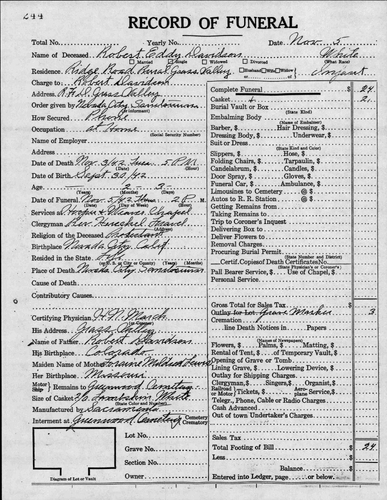 244
RECORD OF FUNERAL
Total No. Yearly No. Date Nov. 5
Name of Deceased Robert Eddy Davidson White
Married Single Widowed Divorced (What Race)
Residence Ridge Road, Rural Grass Valley Husband Wife Widow of Infant
Charge to Robert Davidson
Address R.F.D. Grass Valley
Order given by Nevada City Sanitarium
How Secured Phone
Occupation at Home
(Social Security Number)
Name of Employer
Address
Date of Death Nov. 3/42 Tues. 5 P.M.
Date of Birth Sept. 30/42
Age 2 3
(Years) (Months) (Days)
Date of Funeral Nov. 5/42 2 P.M.
Services at Chapel
Clergyman Rev.
(Address)
Religion of the Deceased Protestant
Birthplace Nevada City, Calif.
Resided in the State
(In U.S. S. or City or County)
Place of Death Nevada City Sanitarium
Cause of Death
Contributory Causes
Certifying Physician H.N. March
His Address Grass Valley
Name of Father Robert Davidson
His Birthplace Colorado
Maiden Name of Mother Mildred
Her Birthplace Missouri
Motor Ship Remains to Greenwood Cemetery
Size of Casket 2/0 White
(State Color and Number)
Manufactured by Sacramento
Interment at Greenwood Cemetery Cemetery Crematory
Lot No.
Grave No.
Section No.
Owner
Diagram of Lot or Vault
Complete Funeral $ 24
Casket $ 2
Burial Vault or Box
(State Kind)
Embalming Body
(Name of Embalmer)
Barber, $ Hair Dressing, $
Dressing Body, $ Underwear, $
Suit or Dress
(State Kind and Color)
Slippers, $ Hose, $
Folding Chairs, $ Tarpaulin, $
Candelabrum, $ Candles, $
Door Spray, $ Gloves, $
Funeral Car, $ Ambulance, $
Limousines to Cemetery @ $
Autos to R. R. Station @ $
Getting Remains from
Taking Remains to
Trip to Coroner's Inquest
Delivering Box to
Deliver Flowers to
Removal Charges
Procuring Burial Permit
(State Number and District)
Certif. Copies of Death Certificates No.
(State Physician's or Coroner's)
Pall Bearer Service, $ Use of Chapel, $
Personal Service
Gross Total for Sales Tax $
Outlay for Lot Grave Marker 3
line Death Notices in Papers
(Names of Newspapers)
Flowers, $ Palms, $ Matting, $
Rental of Tent, $ of Temporary Vault, $
Opening of Grave or Tomb
Lining Grave, $ Lowering Device, $
Outlay for Shipping Charges
Clergyman, $ Singers, $ Organist, $
Railroad Motor Tickets, $ Aeroplane Service, $
Telegr., Phone, Cable or Radio Charges
Cash Advanced
Out of town Undertaker's Charges
Sales Tax
Total Footing of Bill $ 24
Less
Balance $
Entered into Ledger, page or below.